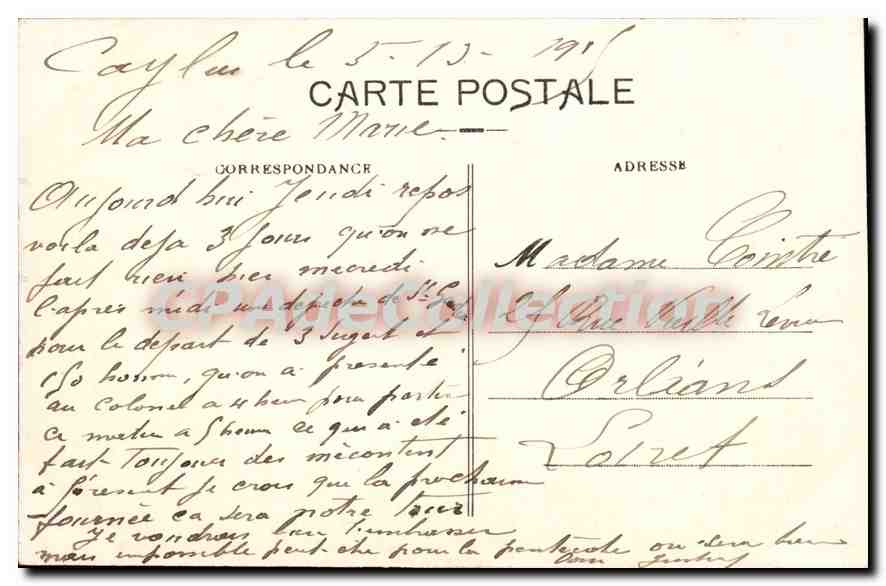 Caylus le 5-13-1915
CARTE POSTALE
Ma chère Marie
CORRESPONDANCE
ADRESSE
Aujourd hui Jeudi repos
voila deja 3 jours qu'on ne
fait rien hier mecredi
l'apres midi une depeche de
pour le depart de 3 sugert et
150 homm, qu'on a presenté
au colonel a 4 heu pour partir
ce matin a 5 heure ce qui a été
fait Toujour des mécontent
à présent je crois que la prochaine
fournée ca sera notre tour
Je voudrais bien t'embrasser
mais impossible peut-etre pour la pentecote on sera bien
Madame Cointre
Rue Vieille Levée
Orléans
Loiret
CPAdeCollection